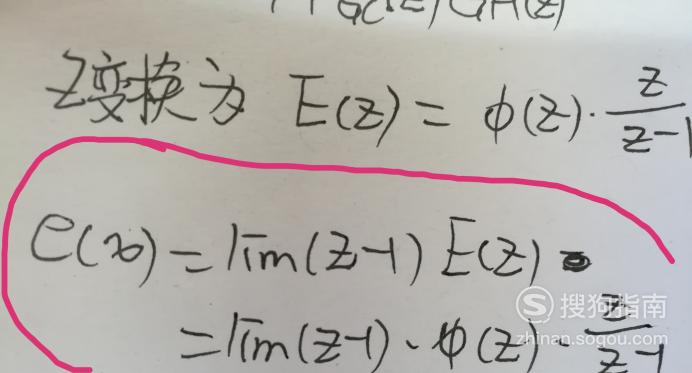 Z变换为 E(z) = φ(z)·z/(z-1)
e(∞) = lim(z-1) E(z)
= lim(z-1)·φ(z)·z/(z-1)
搜狗指南
zhinan.sogou.com